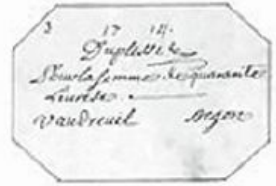 3 17 14.
Duplessis
Pour la somme de quarante
Livres.
Vaudreuil Begon